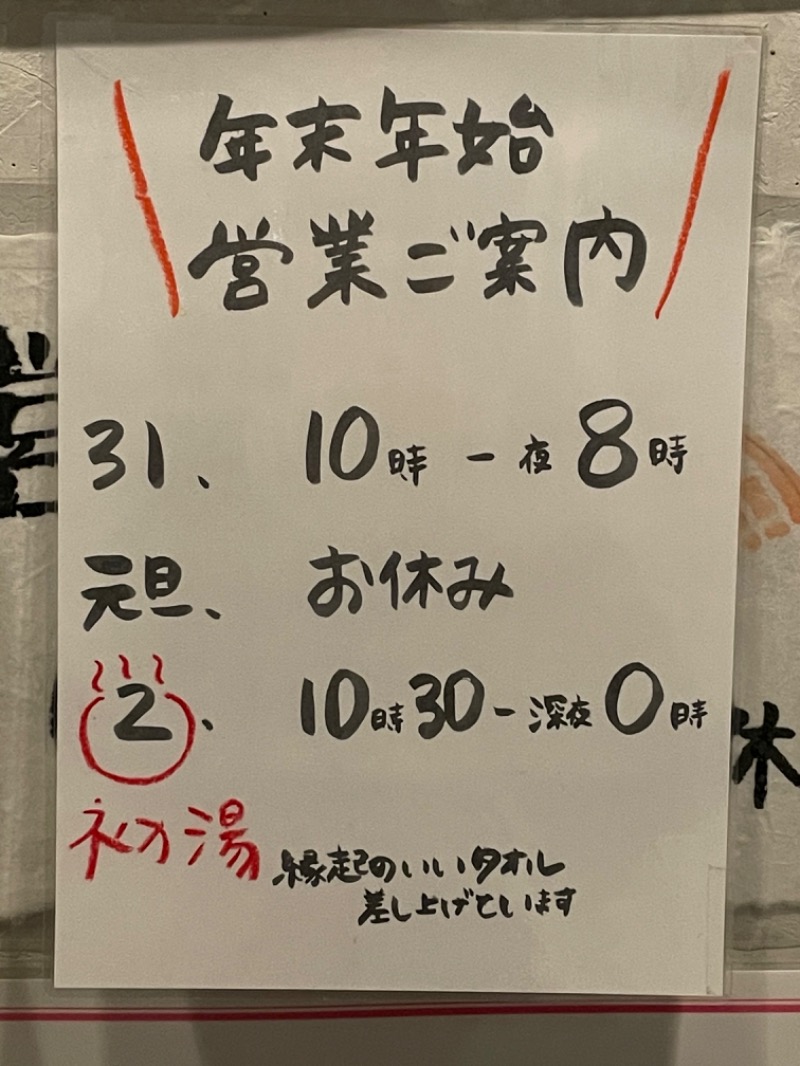 年末年始
営業ご案内
31、 10時-夜8時
元旦、 お休み
2、 10時30-深夜0時
初湯
縁起のいいタオル
差し上げています
休